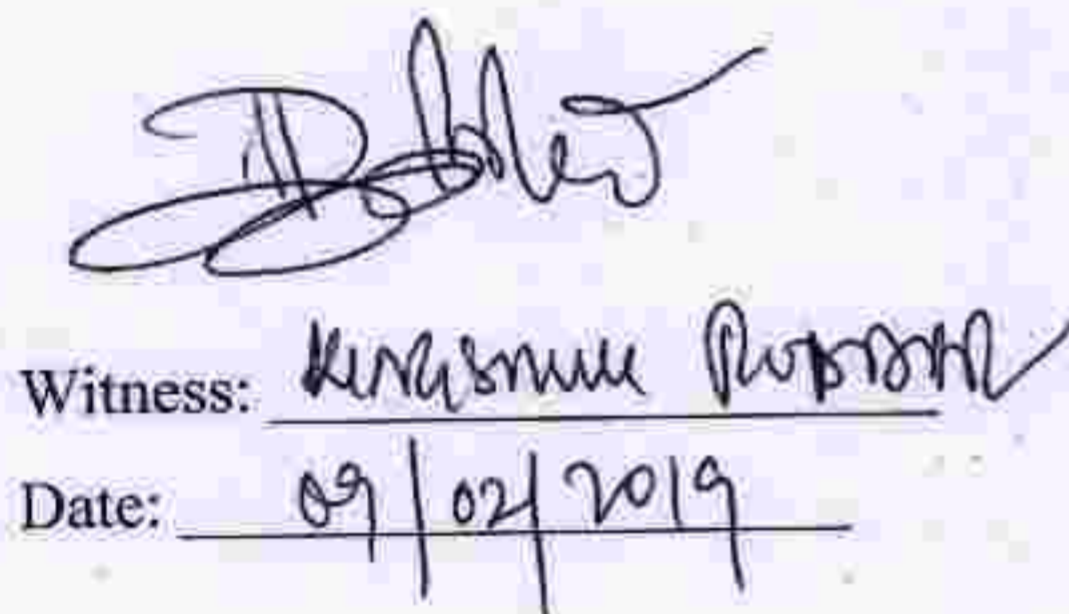 Witness: Kingsmuk Poddar
Date: 09/02/2019